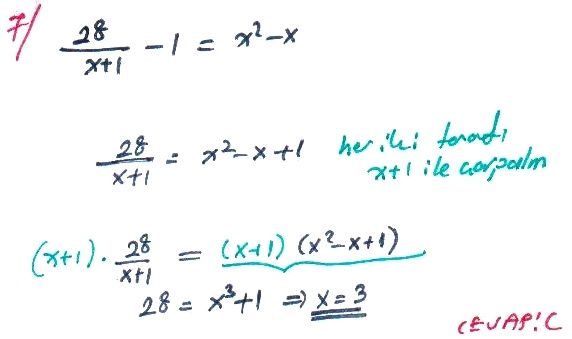 7/ 28/(x+1) - 1 = x² - x
28/(x+1) = x² - x + 1 her iki tarafı
x+1 ile çarpalım
(x+1) · 28/(x+1) = (x+1) (x² - x + 1)
28 = x³ + 1 ⇒ x = 3
CEVAP: C